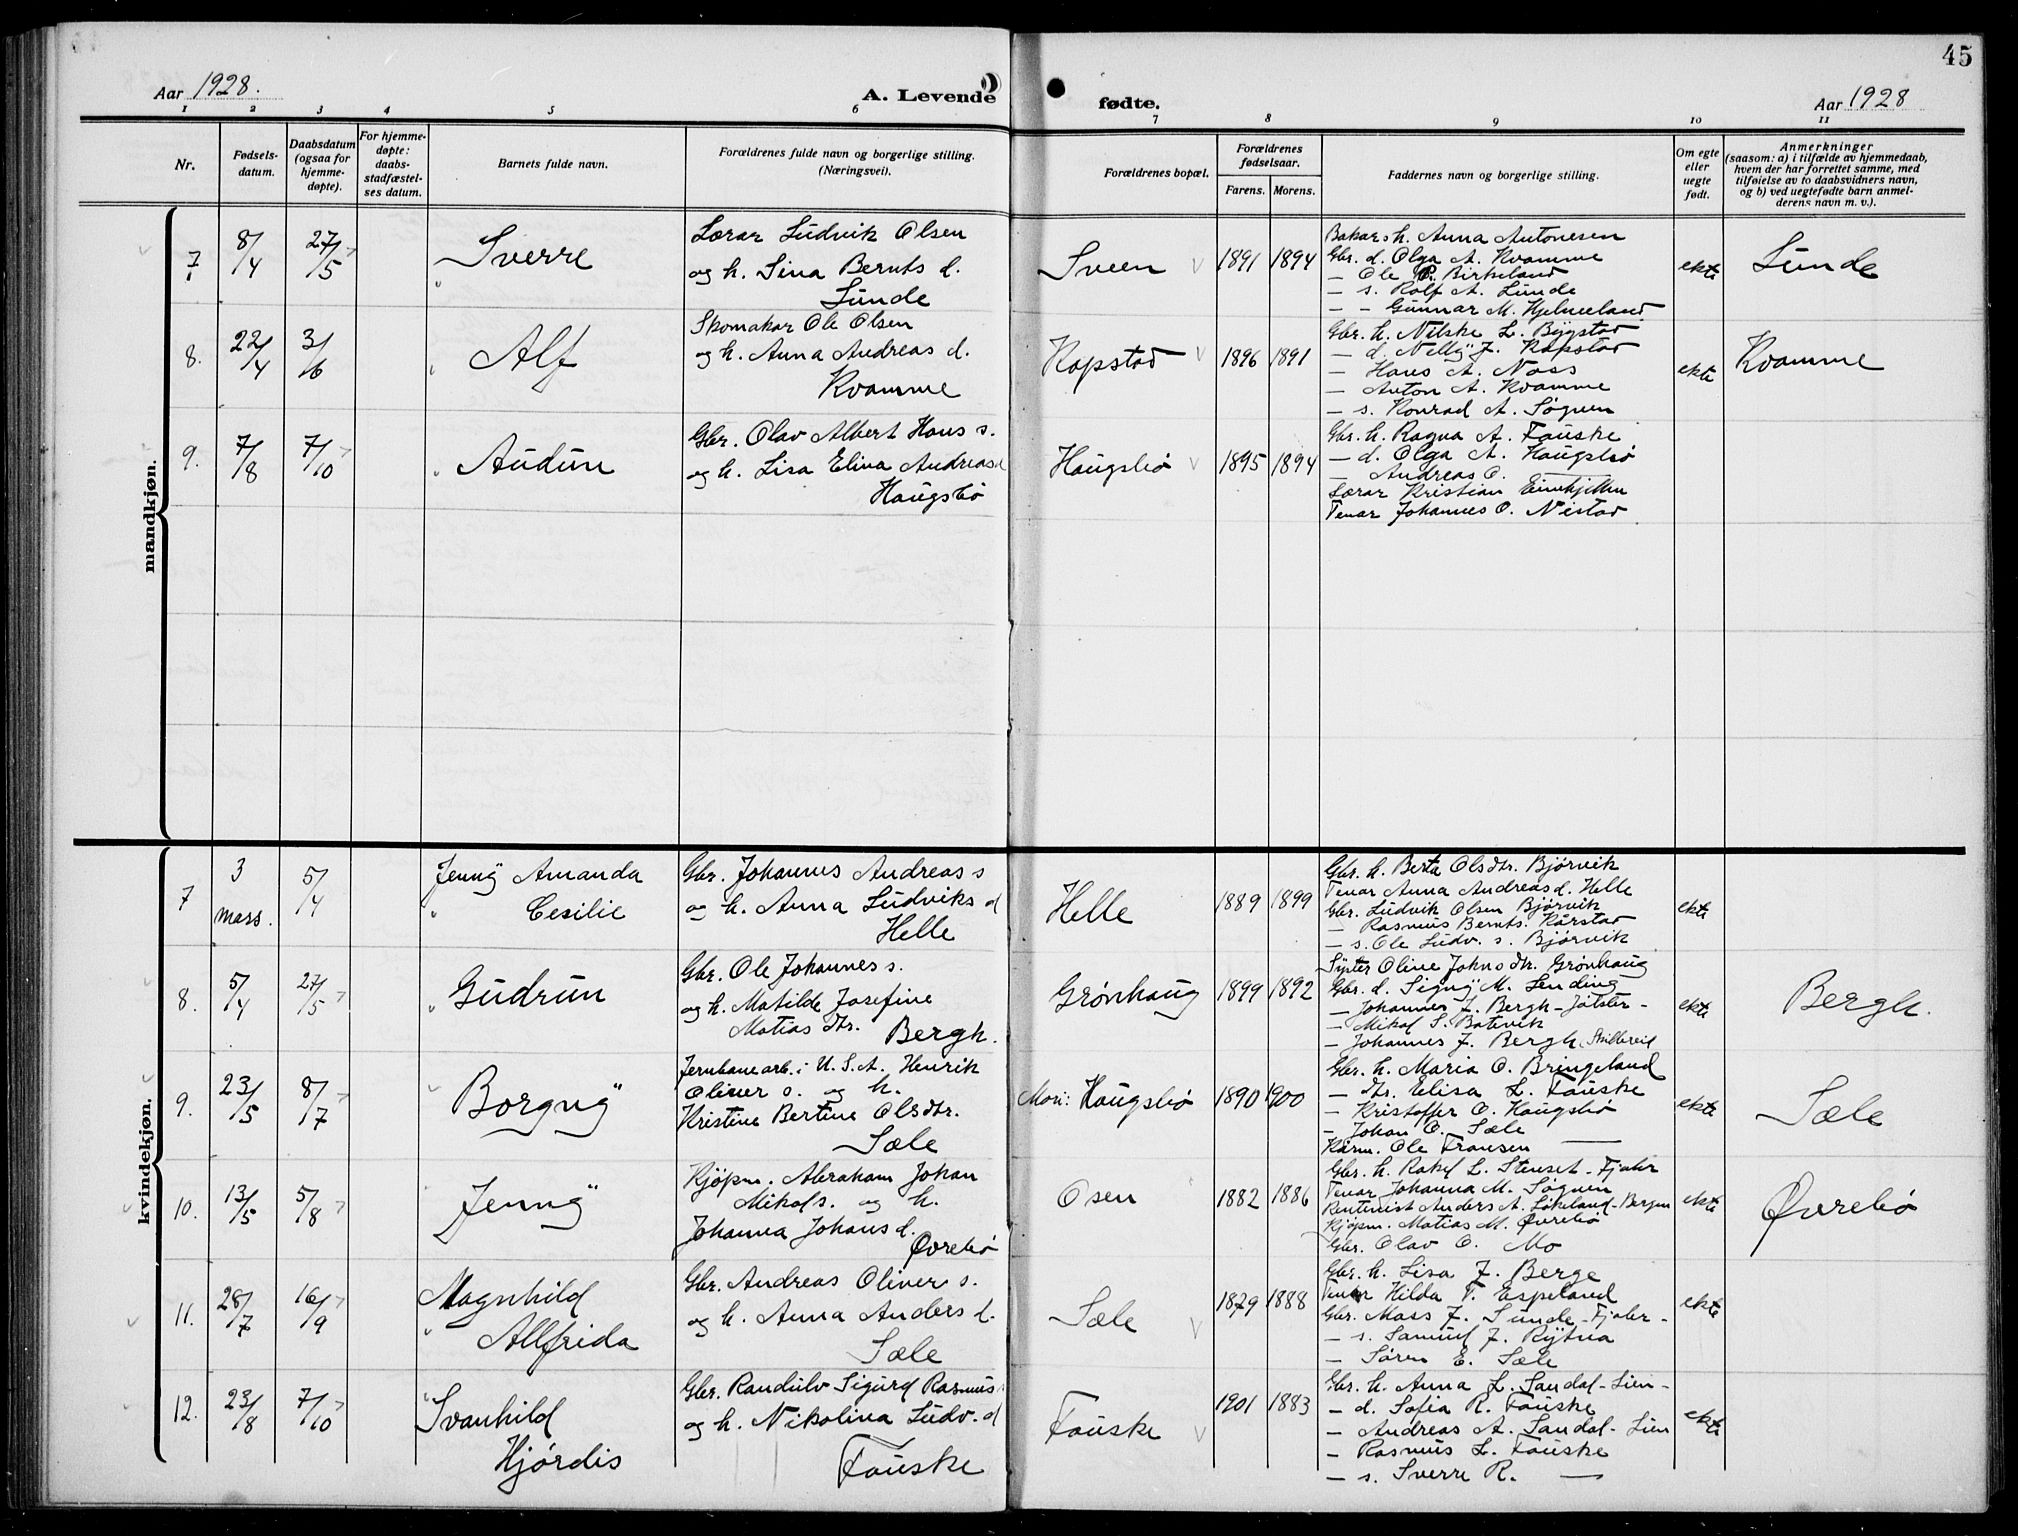 45
Aar 1928.
A. Levende
fødte.
Aar 1928
1 2 3 4 5 6 7 8 9 10 11
Nr.
Fødsels-
datum.
Daabsdatum
(ogsaa for
hjemme-
døpte).
For hjemme-
døpte:
daabs-
stadfæstel-
ses datum.
Barnets fulde navn.
Forældrenes fulde navn og borgerlige stilling.
(Næringsvei).
Forældrenes bopæl.
Forældrenes
fødselsaar.
Farens. Morens.
Faddernes navn og borgerlige stilling.
Om egte
eller
uegte
født.
Anmerkninger
(saasom: a) i tilfælde av hjemmedaab,
hvem der har forrettet samme, med
tilføielse av to daabsvidners navn,
og b) ved uegtefødte barn anmel-
derens navn m. v.).
mandkjøn.
7. 8/4 27/5 Sverre
Lærar Ludvik Olsen
og h. Sina Bernts d.
Lunde
Sveen 1891 1894
Bakar h. Anna Antonesen
Gbr. d. Olga A. Kvamme
— Ole P. Birkeland
— s. Rolf A. Lunde
— - Gunnar M. Hjelmeland
ekte Lunde
8. 22/4 3/6 Alf
Skomakar Ole Olsen
og h. Anna Andreas d.
Kvamme
Kopstad 1896 1891
Gbr. h. Nilske L. Bygstad
— d. Nelly J. Kopstad
— Hans A. Nass
— Anton A. Kvamme
— s. Konrad A. Søgnen
ekte Kvamme
9. 7/8 7/10 Audun
Gbr. Olav Albert Hans s.
og h. Lisa Elina Andreas d
Haugsbø
Haugsbø 1895 1894
Gbr. h. Ragna A. Fauske
— d. Olga A. Haugsbø
— Andreas O. —
Lærar Kristian Eimhjellen
Tenar Johannes O. Nistad
kvindekjøn.
7 3 mars. 5/4 Jenny Amanda
Cesilie
Gbr. Johannes Andreas s
og h. Anna Ludviks d
Helle
Helle 1889 1899
Gbr. h. Berta Olsdtr. Bjørvik
Tenar Anna Andreas d. Helle
Gbr. Ludvik Olsen Bjørvik
— Rasmus Bernts. Kårstad
— s. Ole Ludv. s. Bjørvik
ekte
8. 5/4 27/5 Gudrun
Gbr. Ole Johannes s.
og h. Matilde Josefine
Matias dtr. Bergh.
Grønhaug 1899 1892
Syster Oline Johns dtr. Grønhaug
Gbr. d. Signy M. Lending
— Johannes J. Bergh - Jølster -
— Mikal S. Botevik
— Johannes J. Bergh
ekte Bergh.
9. 23/5 8/7 Borgny
Jernbanearb. i U.S.A. Henrik
Oliver s. og h.
Kristine Bertine Olsdtr.
Sæle
Mori: Haugsbø 1890 1900
Gbr. h. Maria O. Bringeland
— dtr. Elisa L. Fauske
— Kristoffer O. Haugsbø
— Johan O. Sæle
Kårm. Ole Fransen —
ekte Sæle
10. 13/5 5/8 Jenny
Kjøpm. Abraham Johan
Mikals. og h.
Johanna Johans d.
Øvrebø
Osen 1882 1886
Gbr. h. Rakel L. Stenset - Fjaler
Tenar Johanna M. Søgnen
Rentenist Anders A. Løkeland - Bergen
Kjøpm. Matias M. Øvrebø
Gbr. Olav O. Mo
ekte Øvrebø
11. 28/7 16/9 Magnhild
Allfrida
Gbr. Andreas Oliver s.
og h. Anna Anders d.
Sæle
Sæle 1879 1888
Gbr. h. Lisa J. Berge
Tenar Hilda T. Espeland
Gbr. Mass J. Sunde - Fjaler -
— s. Samuel J. Rytna
— Søren E. Sæle
ekte
12. 23/8 7/10 Svanhild
Hjørdis
Gbr. Randulv Sigurd Rasmus
og h. Nikolina Ludv. d
Fauske
Fauske 1901 1883
Gbr. h. Anna L. Sandal - Lien -
— d. Sofia R. Fauske
— Andreas A. Sandal - Lien
— Rasmus L. Fauske
— s. Sverre R. —
ekte